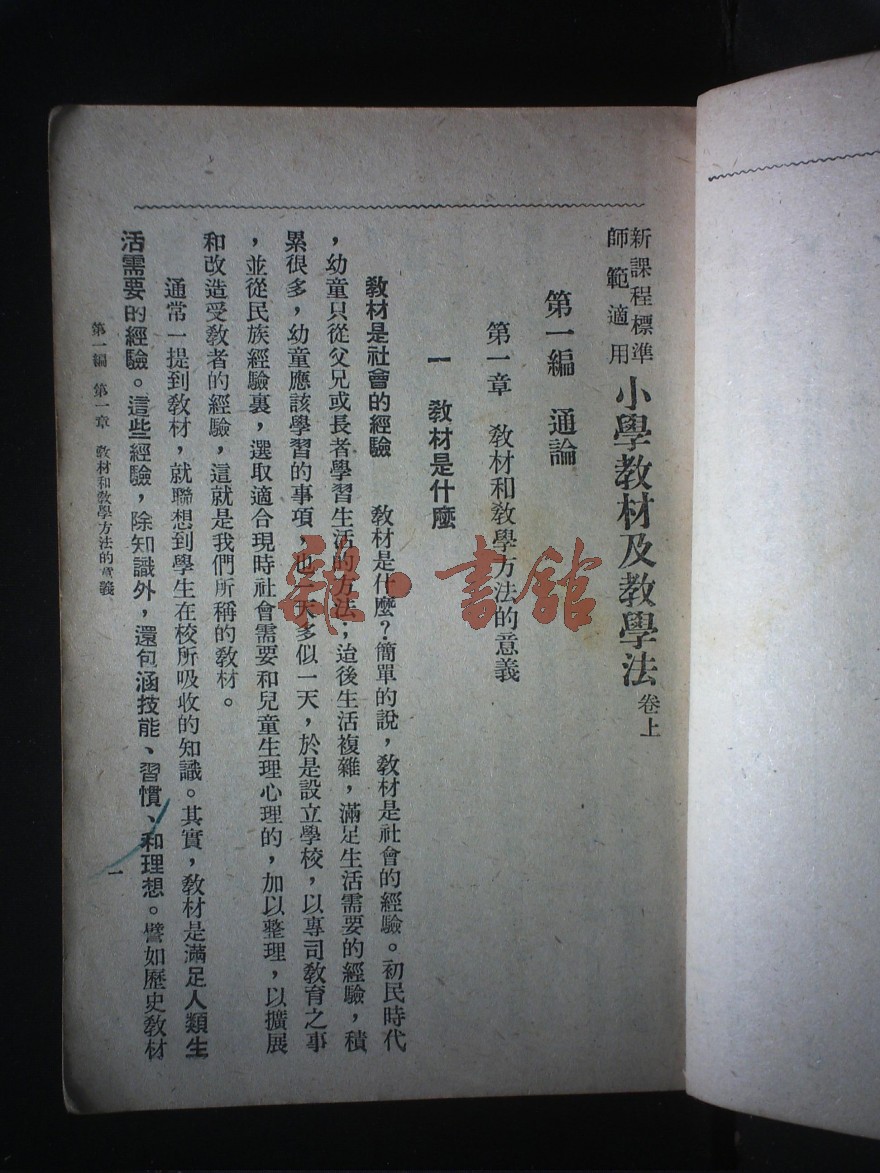 新課程標準
師範適用
小學教材及教學法 卷上
第一編 通論
第一章 教材和教學方法的意義
一 教材是什麼
教材是社會的經驗 教材是什麼？簡單的說，教材是社會的經驗。初民時代
，幼童只從父兄或長者學習生活的方法；迨後生活複雜，滿足生活需要的經驗，積
累很多，幼童應該學習的事項，也一天多似一天，於是設立學校，以專司教育之事
，並從民族經驗裏，選取適合現時社會需要和兒童生理心理的，加以整理，以擴展
和改造受教者的經驗，這就是我們所稱的教材。
通常一提到教材，就聯想到學生在校所吸收的知識。其實，教材是滿足人類生
活需要的經驗。這些經驗，除知識外，還包涵技能、習慣、和理想。譬如歷史教材
第一編 第一章 教材和教學方法的意義
一
雜·書館